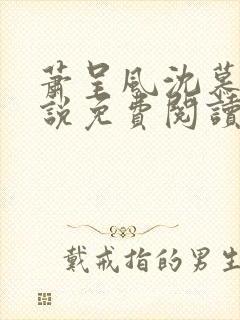 蕭呈風沈慕
說免費閱讀
戴戒指的男生